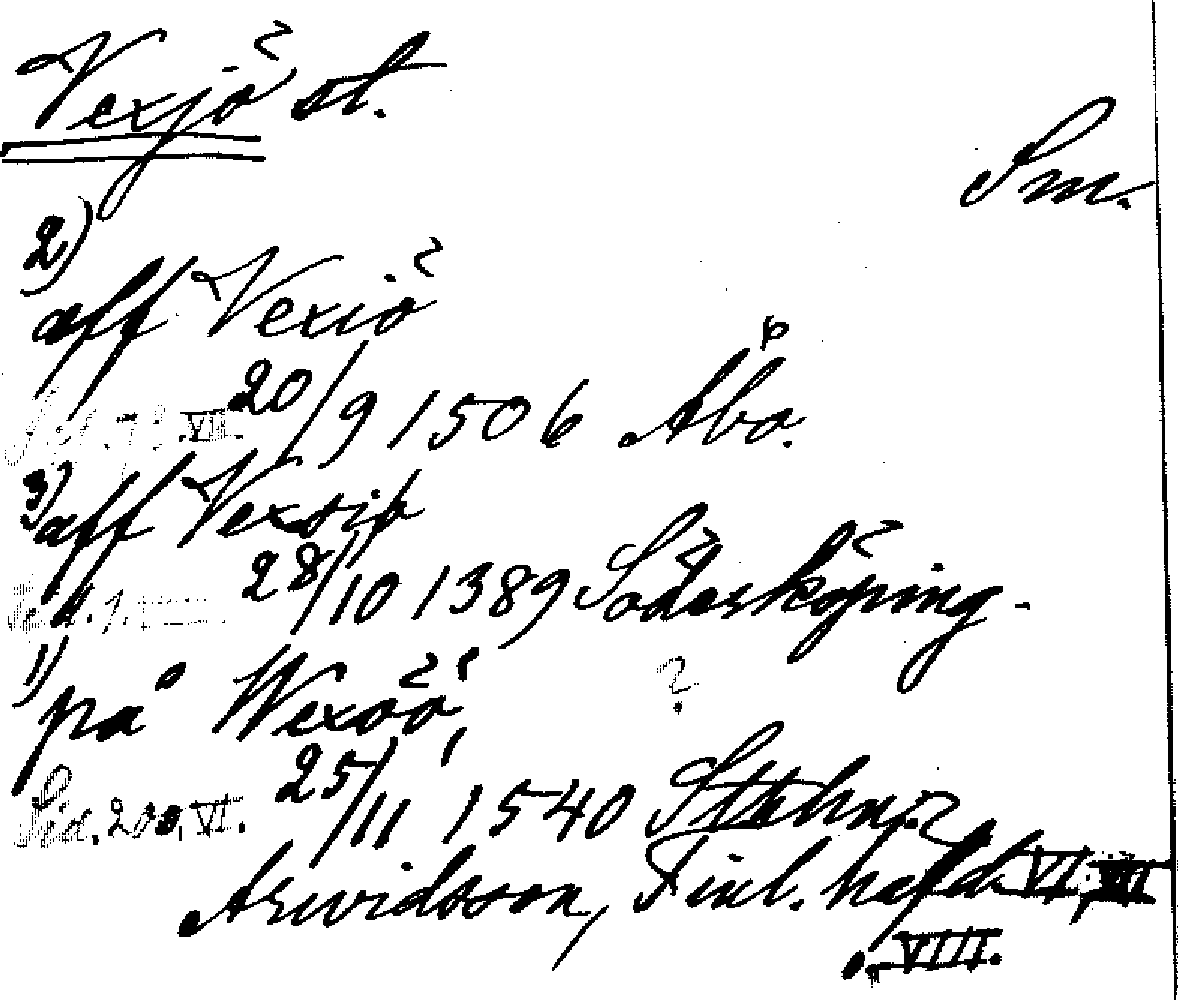 Vexjö st.
Sm.
2)
aff Vexiö
VII. 20/9 1506 Åbo.
3) aff Vexsiö
28/10 1389 Söderköping.
1) på Wexöö, ?
Sid. 200, VI. 25/11 1540 Sthlm.
Arwidsson, Finl. häfd. VI, VII
o. VIII.